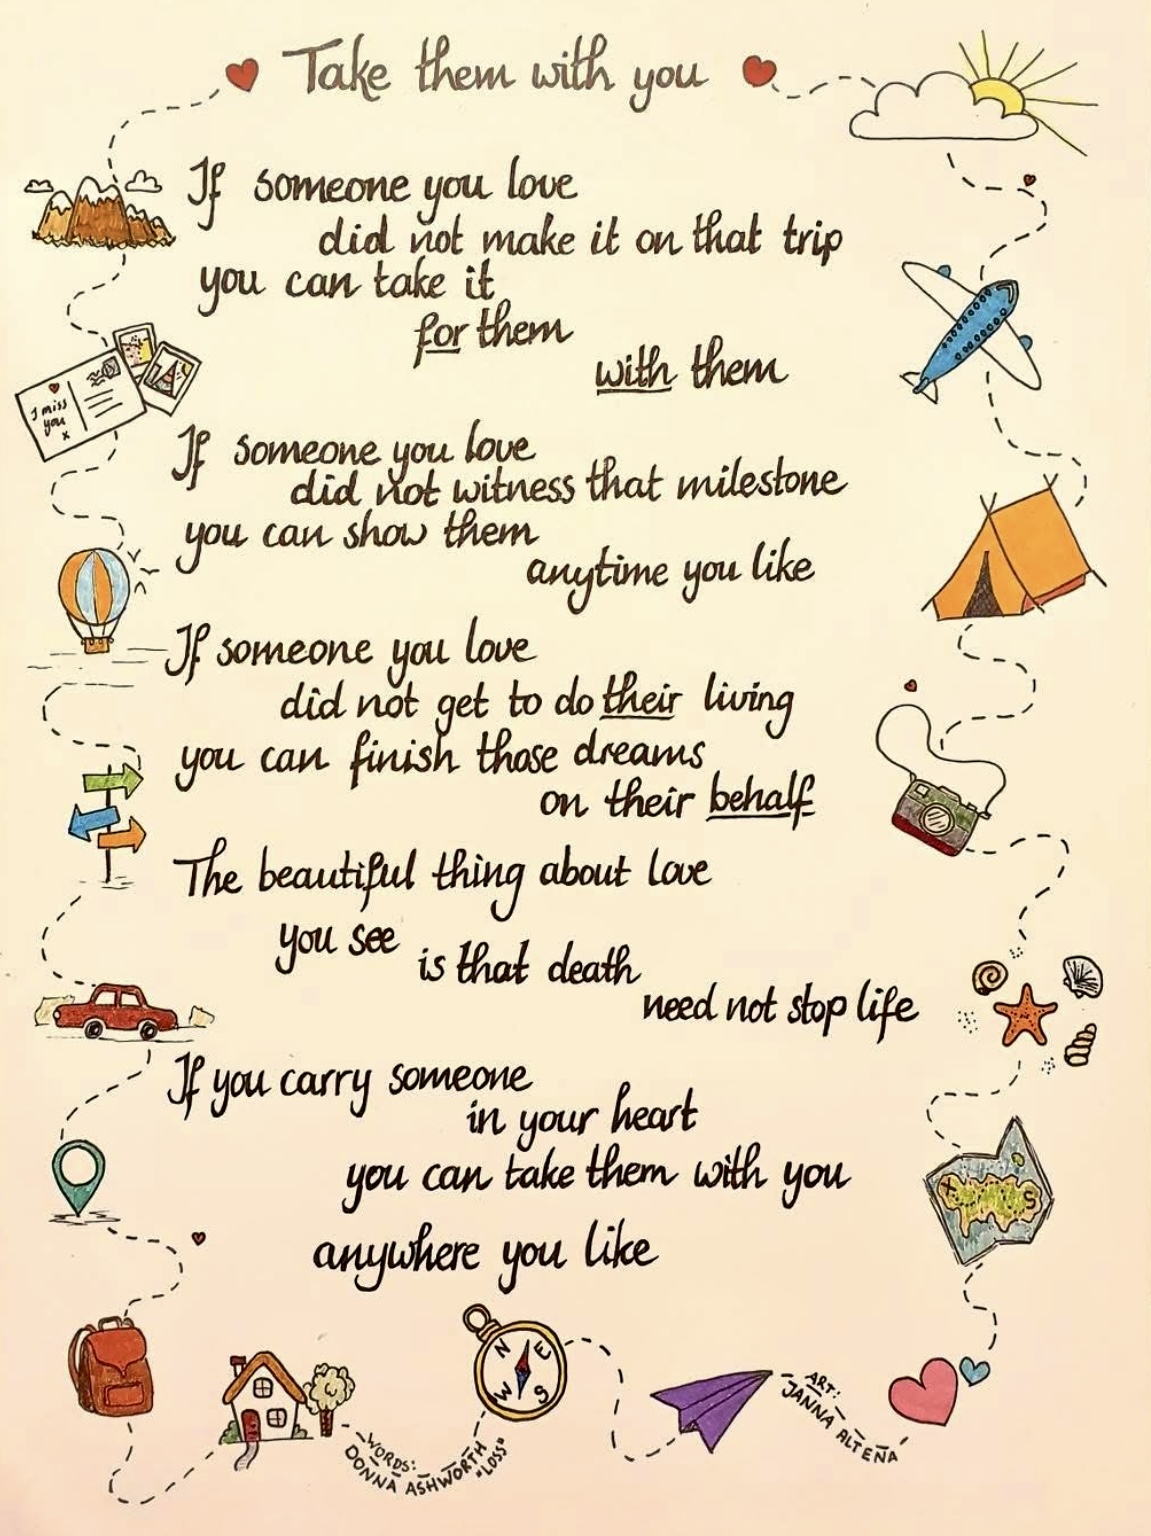 Take them with you
If someone you love
did not make it on that trip
you can take it
for them
with them
I miss
you
x
If someone you love
did not witness that milestone
you can show them
anytime you like
If someone you love
did not get to do their living
you can finish those dreams
on their behalf
The beautiful thing about love
you see
is that death
need not stop life
If you carry someone
in your heart
you can take them with you
anywhere you like
X
S
N
E
W
S
WORDS:
DONNA ASHWORTH
"LOSS"
ART:
JANNA ALTENA